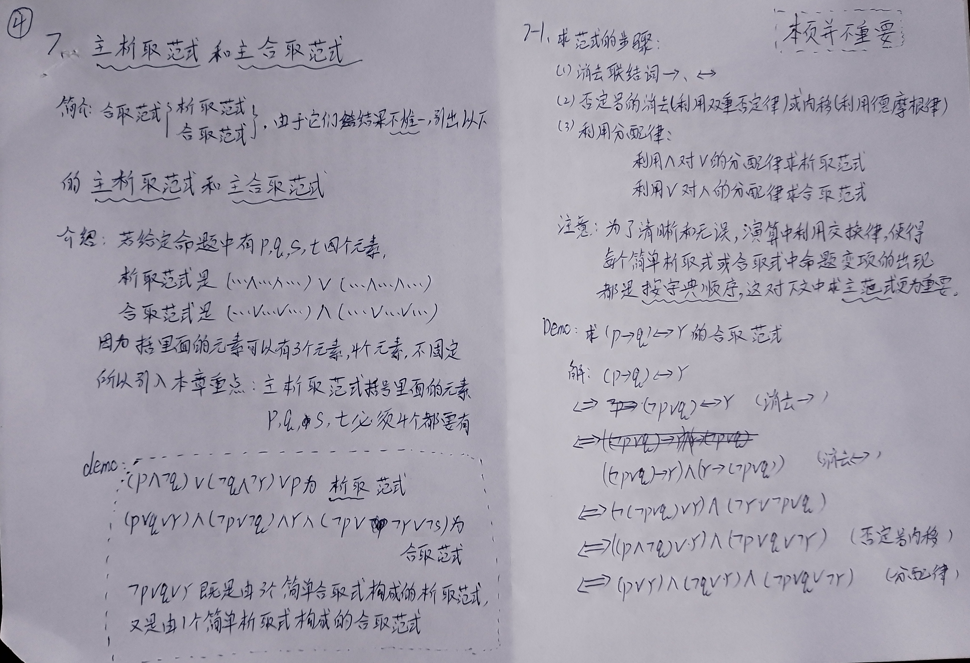 ④
7. 主析取范式和主合取范式
简介: 合取范式{析取范式
合取范式}, 由于它们结果不惟一, 引出以下
的主析取范式和主合取范式
介绍: 若给定命题中有p,q,s,t四个元素,
析取范式是 (…∧…∧…) ∨ (…∧…∧…)
合取范式是 (…∨…∨…) ∧ (…∨…∨…)
因为括里面的元素可以有3个元素,4个元素,不固定
所以引入本章重点: 主析取范式括号里面的元素
p,q,s,t必须4个都要有
demo:
(p∧¬q)∨(¬q∧¬r)∨p为 析取范式
(p∨q∨r)∧(¬p∨¬q)∧r∧(¬p∨¬r∨¬s)为
合取范式
¬p∨q∨r 既是由3个简单合取式构成的析取范式,
又是由1个简单析取式构成的合取范式
本页并不重要
7-1. 求范式的步骤:
(1) 消去联结词→、↔
(2) 否定号的消去(利用双重否定律)或内移(利用德摩根律)
(3) 利用分配律:
利用∧对∨的分配律求析取范式
利用∨对∧的分配律求合取范式
注意: 为了清晰和无误, 演算中利用交换律, 使得
每个简单析取式或合取式中命题变项的出现
都是按字典顺序, 这对下文中求主范式更为重要。
Demo: 求(p→q)↔r的合取范式
解: (p→q)↔r
⇔ (¬p∨q)↔r (消去→)
⇔
((¬p∨q)→r)∧(r→(¬p∨q)) (消去↔)
⇔(¬(¬p∨q)∨r)∧(¬r∨¬p∨q)
⇔((p∧¬q)∨r)∧(¬p∨q∨¬r) (否定号内移)
⇔(p∨r)∧(¬q∨r)∧(¬p∨q∨¬r) (分配律)